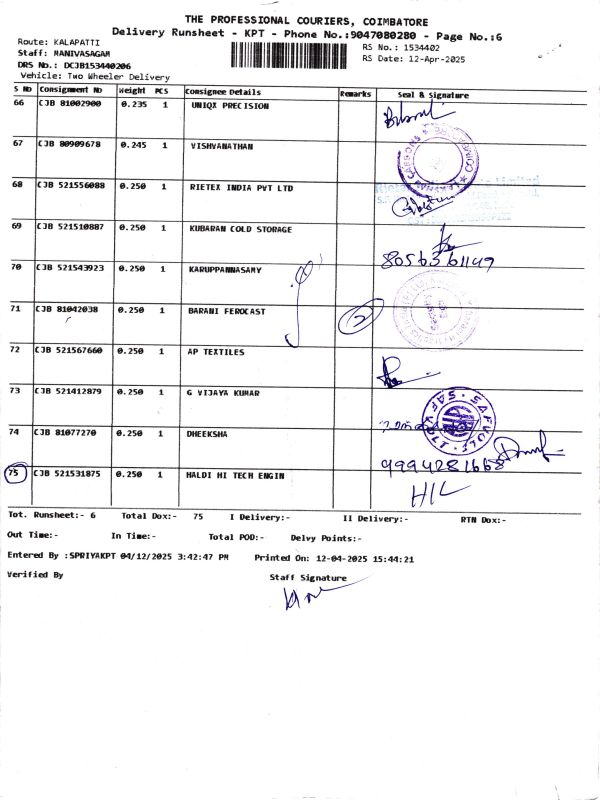 THE PROFESSIONAL COURIERS, COIMBATORE
Delivery Runsheet - KPT - Phone No.:9047080280 - Page No.:6
Route: KALAPATTI
Staff: MANIVASAGAM
DRS No.: DCJB153440206
Vehicle: Two Wheeler Delivery
RS No.: 1534402
RS Date: 12-Apr-2025
S NO Consignment No Weight PCS Consignee Details Remarks Seal & Signature
66 CJB 81002900 0.235 1 UNIQX PRECISION
67 CJB 80909678 0.245 1 VISHVANATHAN
68 CJB 521556088 0.250 1 RIETEX INDIA PVT LTD
69 CJB 521510887 0.250 1 KUBARAN COLD STORAGE
8056361149
70 CJB 521543923 0.250 1 KARUPPANNASAMY
71 CJB 81042038 0.250 1 BARANI FEROCAST 2
72 CJB 521567660 0.250 1 AP TEXTILES
73 CJB 521412879 0.250 1 G VIJAYA KUMAR
SAFVOLT
74 CJB 81077270 0.250 1 DHEEKSHA
9994281668
75 CJB 521531875 0.250 1 HALDI HI TECH ENGIN
Tot. Runsheet:- 6 Total Dox:- 75 I Delivery:- II Delivery:- RTN Dox:-
Out Time:- In Time:- Total POD:- Delvy Points:-
Entered By :SPRIYAKPT 04/12/2025 3:42:47 PM Printed On: 12-04-2025 15:44:21
Verified By Staff Signature